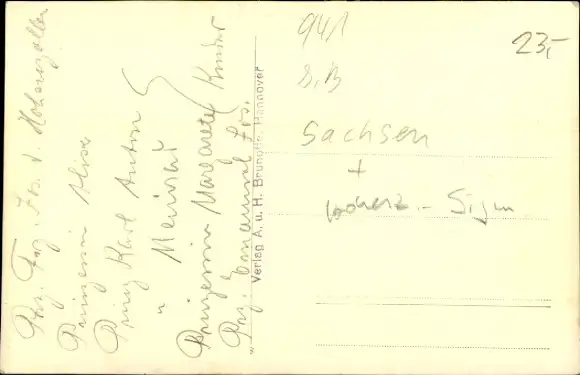 Prz. Frz. Jos. v. Hohenzoller
Prinzessin Alise
Prinz Karl Anton
" Meinrat
Prinzessin Margarete Kinder
Prz. Emanuel Jos.
Verlag A. u. H. Brunotte, Hannover
941
23,-
S, B
Sachsen
+
Hohenz. - Sigm.